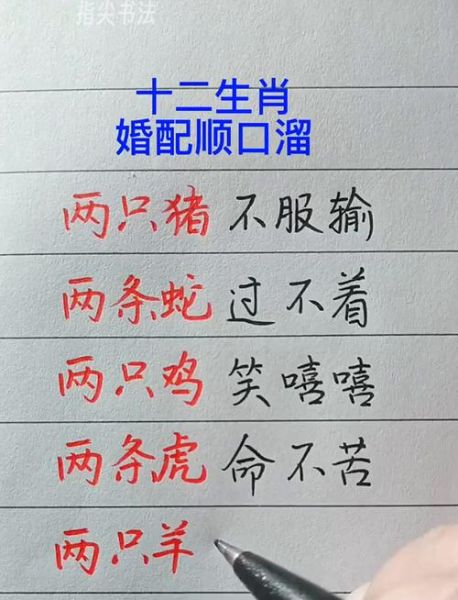 指尖书法
十二生肖
婚配顺口溜
两只猪 不服输
两条蛇 过不着
两只鸡 笑嘻嘻
两条虎 命不苦
两只羊